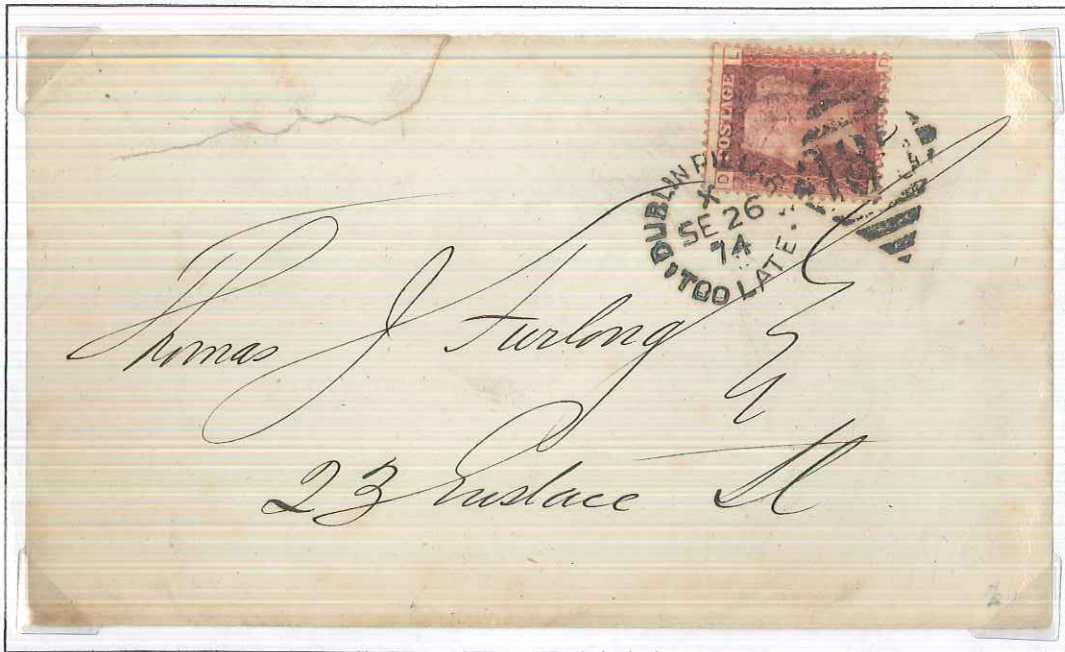 L D
POSTAGE
D
DUBLIN
X
SE 26
74
TOO LATE
Thomas J Furlong
23 Eustace St